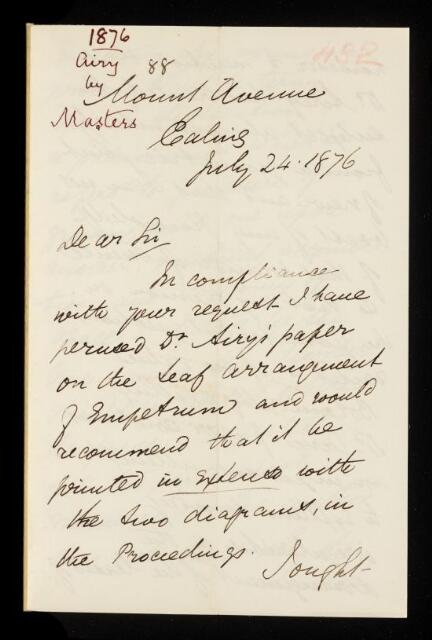 1876
Airy
by
Masters
88
432
Mount Avenue
Ealing
July 24. 1876
Dear Sir
In compliance
with your request I have
perused Dr. Airy's paper
on the leaf arrangement
of Empetrum and would
recommend that it be
printed in extenso with
the two diagrams, in
the Proceedings.
I ought